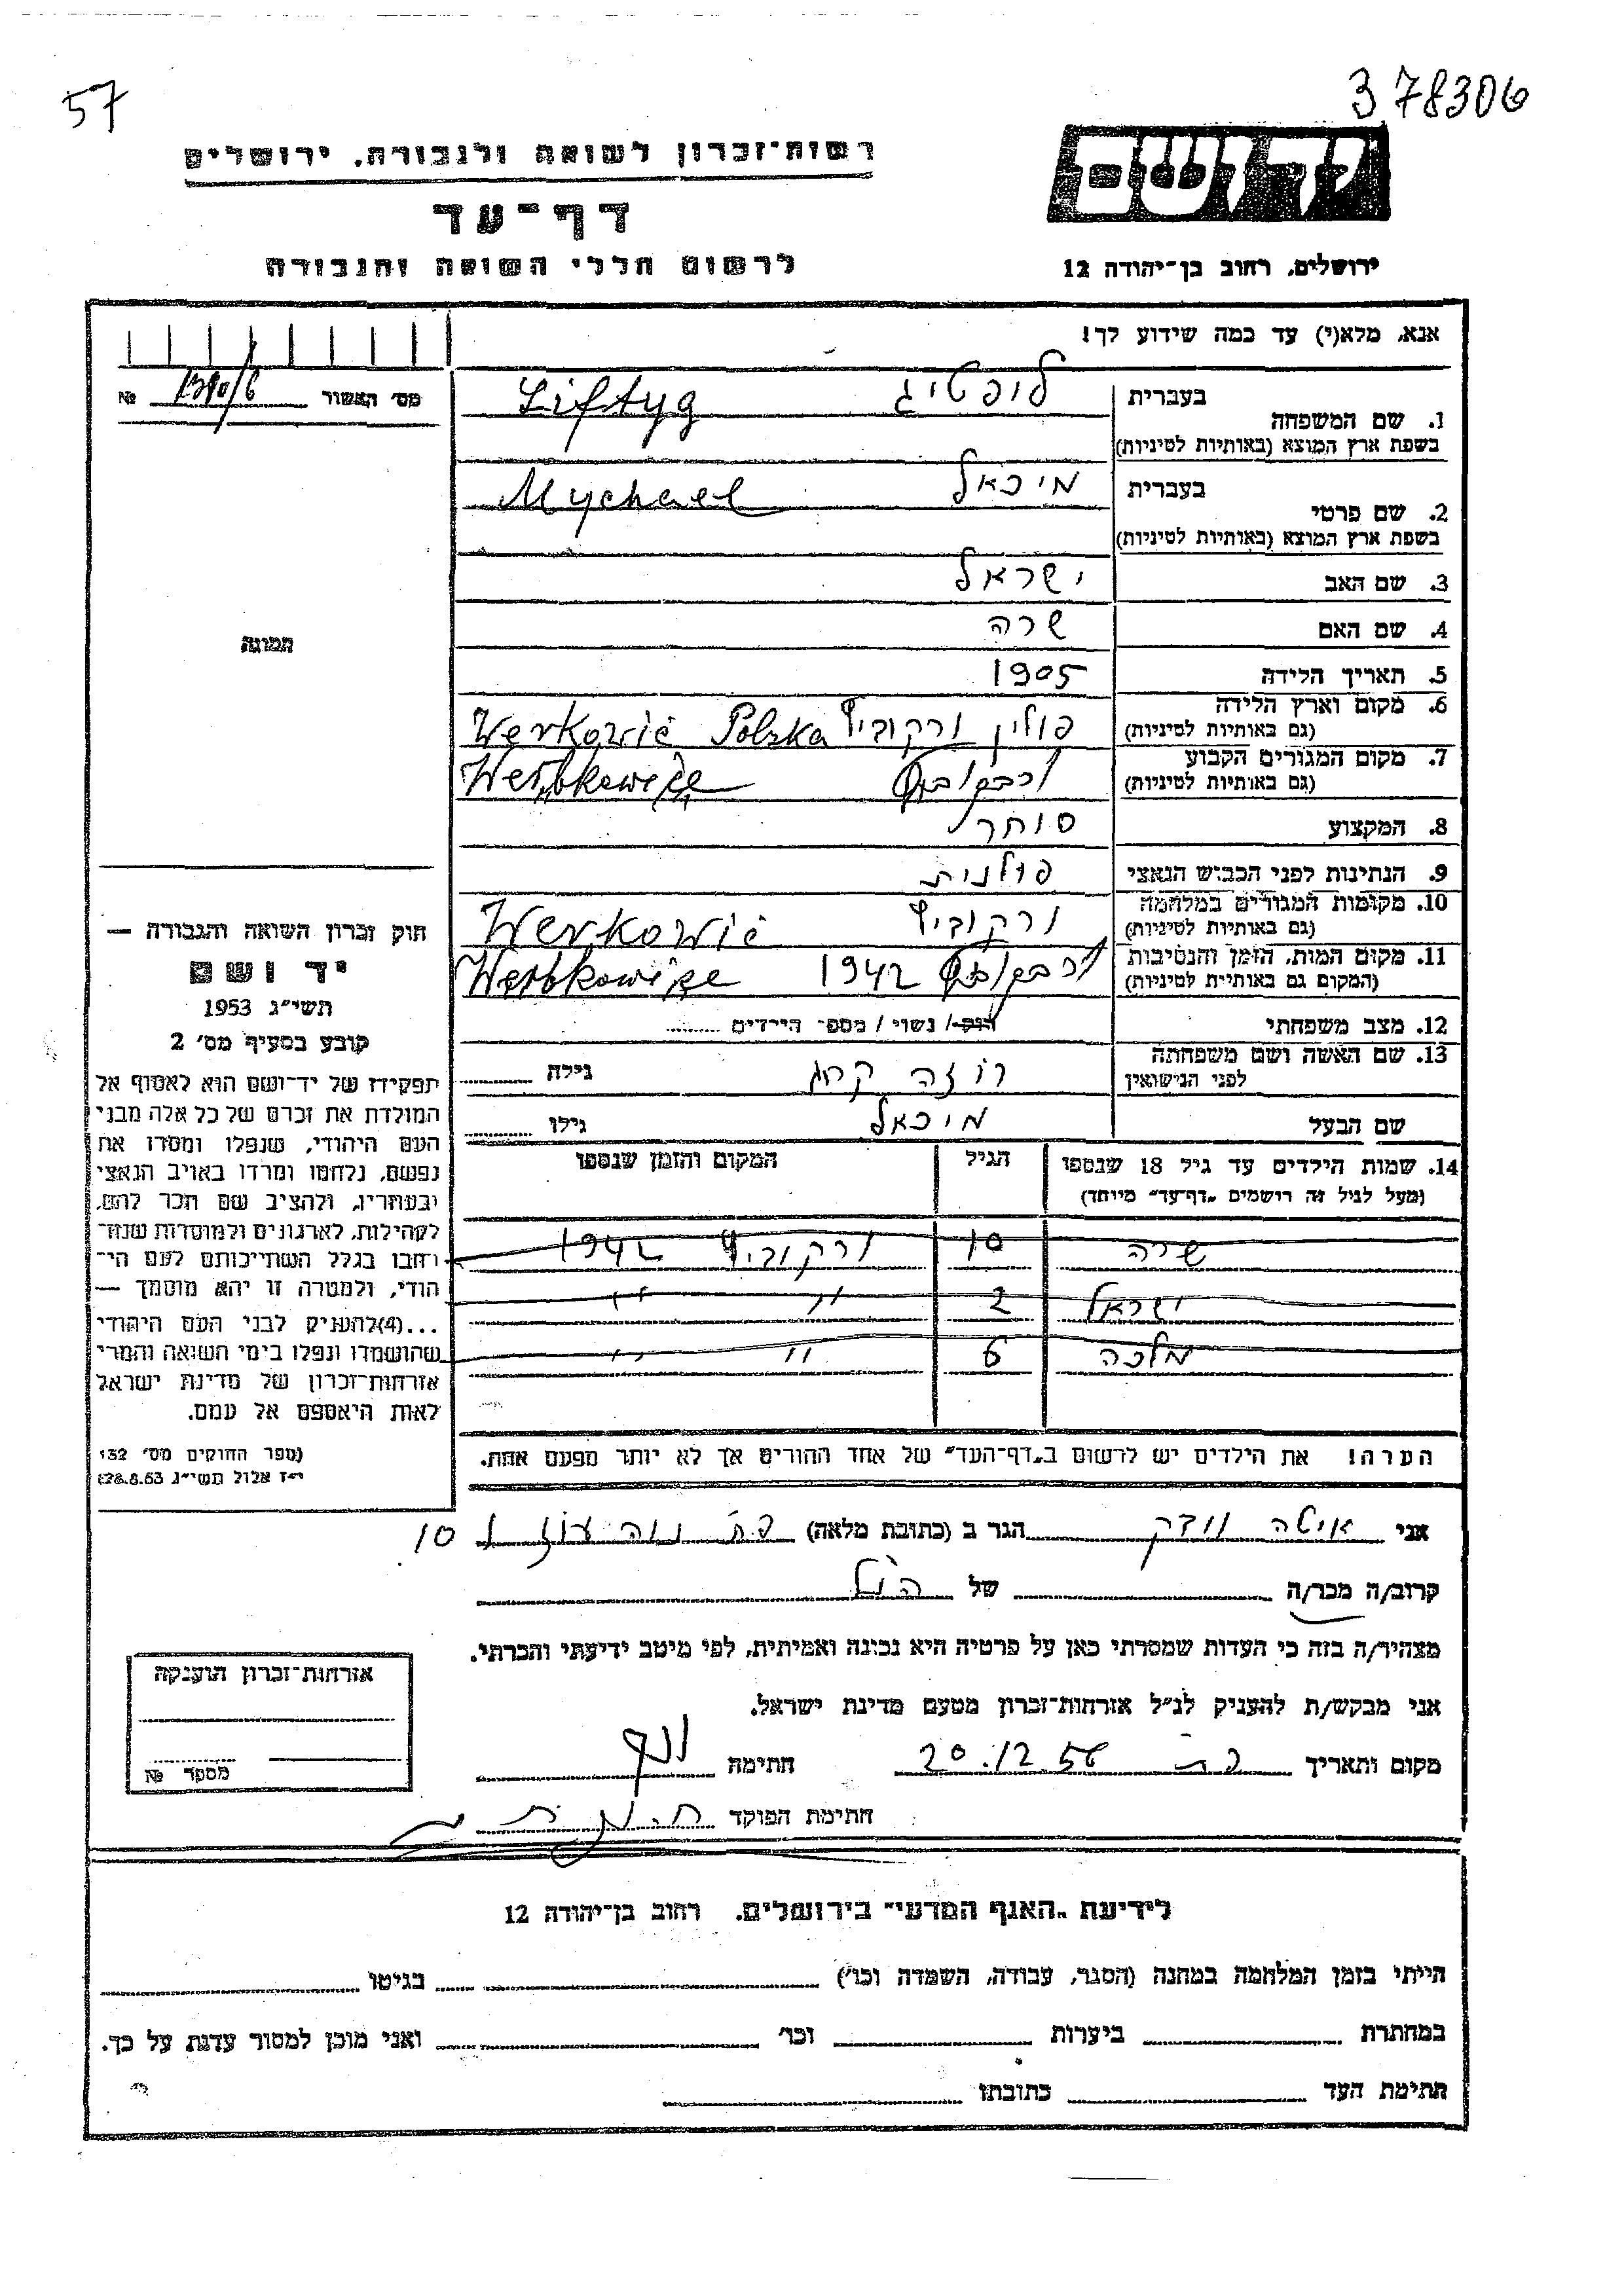 57
378306
רשות־זכרון לשואה ולגבורה, ירושלים
יד ושם
דף־עד
לרשום חללי השואה והגבורה
ירושלים, רחוב בן־יהודה 12
אנא, מלא(י) עד כמה שידוע לך!
מס׳ האשור 1390/6 №
תמונה
1. שם המשפחה בעברית ליפטיג Liftyg
בשפת ארץ המוצא (באותיות לטיניות)
2. שם פרטי בעברית מיכאל Mychael
בשפת ארץ המוצא (באותיות לטיניות)
3. שם האב ישראל
4. שם האם שרה
5. תאריך הלידה 1905
6. מקום וארץ הלידה פולין ורקוביץ Werkowić Polska
(גם באותיות לטיניות)
7. מקום המגורים הקבוע Werbkowice
(גם באותיות לטיניות)
8. המקצוע סוחר
9. הנתינות לפני הכבוש הנאצי פולנית
10. מקומות המגורים במלחמה ורקוביץ Werkowić
(גם באותיות לטיניות)
11. מקום המות, הזמן והנסיבות 1942 Werbkowice
(המקום גם באותיות לטיניות)
12. מצב משפחתי רווק/ נשוי / מספר הילדים
13. שם האשה ושם משפחתה רוזה גילה
לפני הנישואין
שם הבעל מיכאל גילו
14. שמות הילדים עד גיל 18 שנספו הגיל המקום והזמן שנספו
(מעל לגיל זה רושמים „דף־עד״ מיוחד)
שרה 10 ורקוביץ 1942
ישראל 2 " "
מלכה 6 " "
הערה! את הילדים יש לרשום ב„דף־העד״ של אחד ההורים אך לא יותר מפעם אחת.
חוק זכרון השואה והגבורה —
יד ושם
תשי״ג 1953
קובע בסעיף מס׳ 2
תפקידו של יד־ושם הוא לאסוף אל
המולדת את זכרם של כל אלה מבני
העם היהודי, שנפלו ומסרו את
נפשם, נלחמו ומרדו באויב הנאצי
ובעוזריו, ולהציב שם וזכר להם,
לקהילות, לארגונים ולמוסדות שנח־
רבו בגלל השתייכותם לעם הי־
הודי, ולמטרה זו יהא מוסמך —
...(4)להעניק לבני העם היהודי
שהושמדו ונפלו בימי השואה והמרי
אזרחות־זכרון של מדינת ישראל
לאות היאספם אל עמם.
(ספר החוקים מס׳ 132
י״ז אלול תשי״ג 28.8.53)
אני איטה הגר ב (כתובת מלאה) פ״ת נוה עוז 10
קרוב/ה מכר/ה של הנ״ל
מצהיר/ה בזה כי העדות שמסרתי כאן על פרטיה היא נכונה ואמיתית, לפי מיטב ידיעתי והכרתי.
אני מבקש/ת להעניק לנ״ל אזרחות־זכרון מטעם מדינת ישראל.
מקום ותאריך פ״ת 20.12.56 חתימה
חתימת הפוקד
אזרחות־זכרון הוענקה
מספר №
לידיעת „האגף המדעי״ בירושלים, רחוב בן־יהודה 12
הייתי בזמן המלחמה במחנה (הסגר, עבודה, השמדה וכו׳) בגיטו
במחתרת ביערות וכו׳ ואני מוכן למסור עדות על כך.
חתימת העד כתובתו